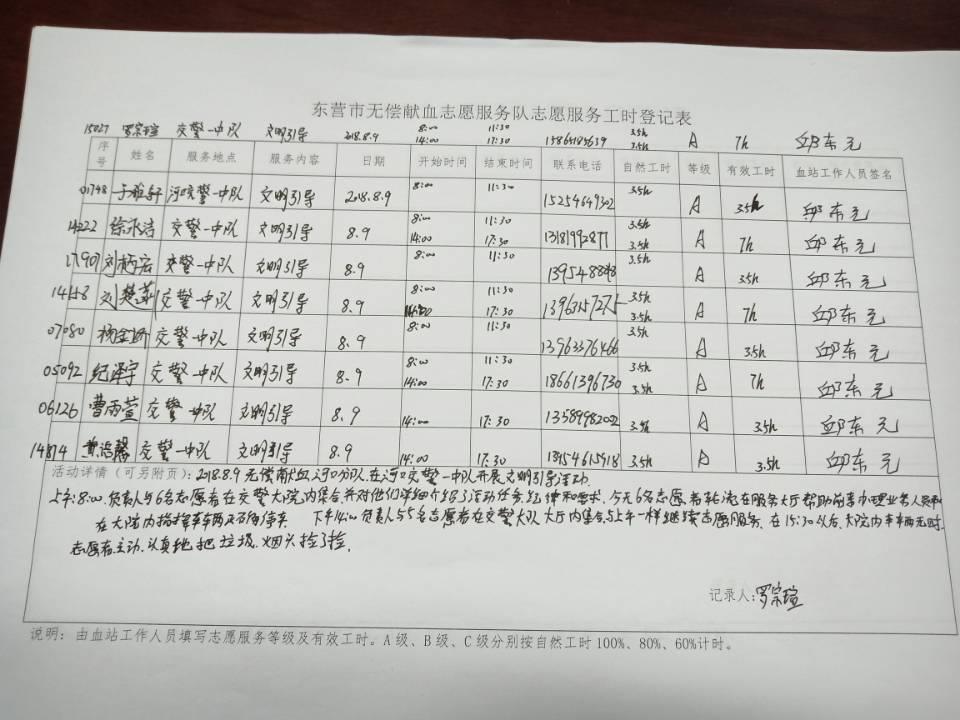 东营市无偿献血志愿服务队志愿服务工时登记表
15027 罗宗瑄 交警一中队 文明引导 2018.8.9 8:00 14:00 11:30 17:30 15865185639 3.5h 3.5h A 7h 邱东元
序号 姓名 服务地点 服务内容 日期 开始时间 结束时间 联系电话 自然工时 等级 有效工时 血站工作人员签名
01748 于雅轩 河口交警一中队 文明引导 2018.8.9 8:00 11:30 15254649302 3.5h A 3.5h 邱东元
14222 徐永洁 交警一中队 文明引导 8.9 8:00 14:00 11:30 17:30 13181992877 3.5h 3.5h A 7h 邱东元
17907 刘柄宏 交警一中队 文明引导 8.9 8:00 11:30 3.5h A 3.5h 邱东元
14158 刘楚 交警一中队 文明引导 8.9 8:00 14:00 11:30 17:30 3.5h 3.5h A 7h 邱东元
07080 杨金 交警一中队 文明引导 8.9 8:00 11:30 13963376466 3.5h A 3.5h 邱东元
05092 纪泽宇 交警一中队 文明引导 8.9 8:00 14:00 11:30 17:30 18661396730 3.5h 3.5h A 7h 邱东元
06126 曹雨萱 交警一中队 文明引导 8.9 14:00 17:30 13589982022 3.5h A 3.5h 邱东元
14814 黄浩馨 交警一中队 文明引导 8.9 14:00 17:30 18954615918 3.5h A 3.5h 邱东元
活动详情(可另附页):2018.8.9无偿献血河口分队在河口交警一中队开展文明引导活动.
上午8:00.负责人与6名志愿者在交警大院内集合并对他们详细介绍了活动任务纪律和需求.今天6名志愿者轮流在服务大厅帮助前来办理业务人员和
在大院内指挥来车两不乱停乱 下午14:00负责人与5名志愿者在交警大队大厅内集合与上午一样继续志愿服务.在15:30以后,大院内车辆无时,
志愿者主动.认真地把垃圾.烟头捡了捡.
记录人:罗宗瑄
说明:由血站工作人员填写志愿服务等级及有效工时。A级、B级、C级分别按自然工时100%、80%、60%计时。